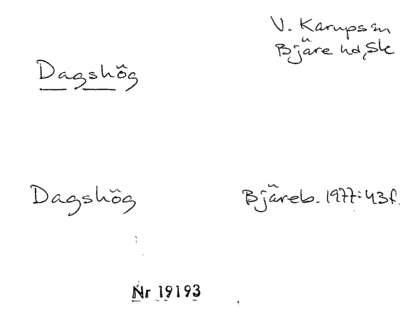 V. Karupssn
Bjäre hd, Sk
Dagshög
Dagshög
Bjäreb. 1977:43f.
Nr 19193